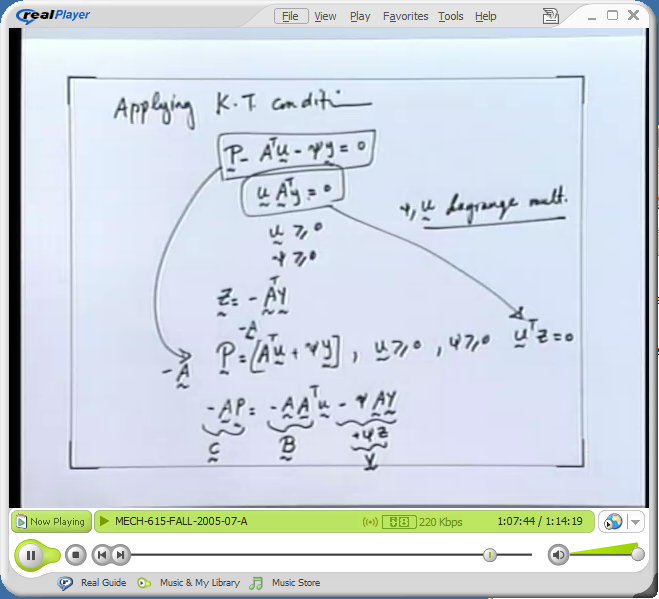 realPlayer File View Play Favorites Tools Help
Applying K.T. conditi
P - Aᵀu - ψy = 0
u Aᵀy = 0
u ⩾ 0
ψ ⩾ 0
ψ, u Lagrange mult.
Z = - AᵀY
-A
P = [Aᵀu + ψy] , u ⩾ 0 , ψ ⩾ 0 uᵀZ = 0
-A
-AP = -AAᵀu - ψAY
C B +ψZ
Y
Now Playing MECH-615-FALL-2005-07-A 220 Kbps 1:07:44 / 1:14:19
Real Guide Music & My Library Music Store